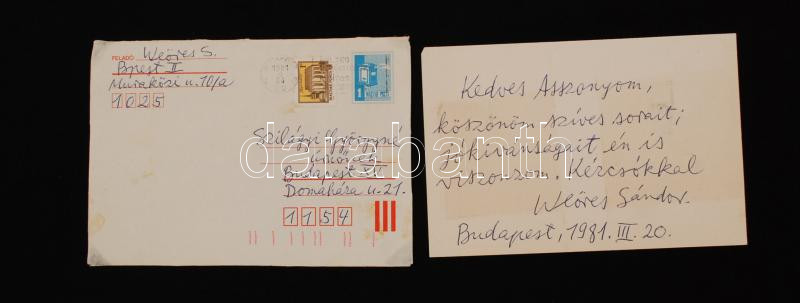 FELADÓ: Weöres S.
Bpest II
Muraközi u. 10/a
1025
1981
1
MAGYAR POSTA
Szilágyi Györgyné
úrnőnek
Budapest XV.
Domahára u. 21.
1154
darabanth
Kedves Asszonyom,
köszönöm szíves sorait;
jókívánságait én is
viszonzom. Kézcsókkal
Weöres Sándor.
Budapest, 1981. III. 20.